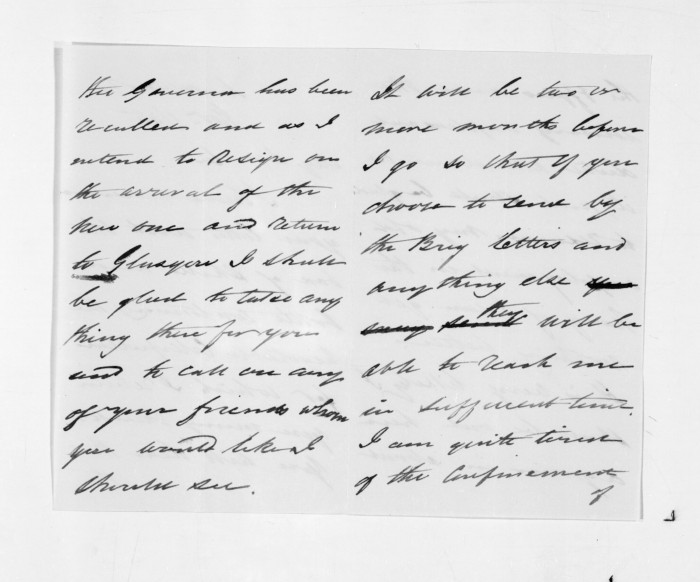 the Governor has been
recalled and as I
intend to resign on
the arrival of the
new one and return
to Glasgow I shall
be glad to take any
thing there for you
and to call on any
of your friends whom
you would like I
should see.
It will be two or
more months before
I go so that if you
choose to send by
the Brig letters and
anything else you
may send they will be
able to reach me
in sufficient time.
I am quite tired
of the confinement
of